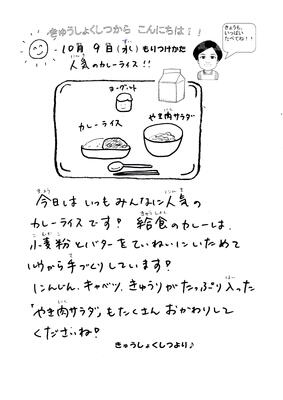 きゅうしょくしつから こんにちは！！
きょうも、
いっぱい
たべてね！！
10月 9日(水) もりつけかた
人気のカレーライス！！
ヨーグルト
カレーライス
やき肉サラダ
今日は いつもみんなに人気の
カレーライスです！ 給食のカレーは、
小麦粉とバターを ていねいに いためて
ルウから手づくりしています！
にんじん、キャベツ、きゅうりが たっぷり入った
「やき肉サラダ」も たくさん おかわりして
くださいね！
きゅうしょくしつより♪